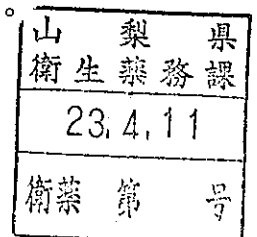 山梨県
衛生薬務課
23.4.11
衛薬 第 号